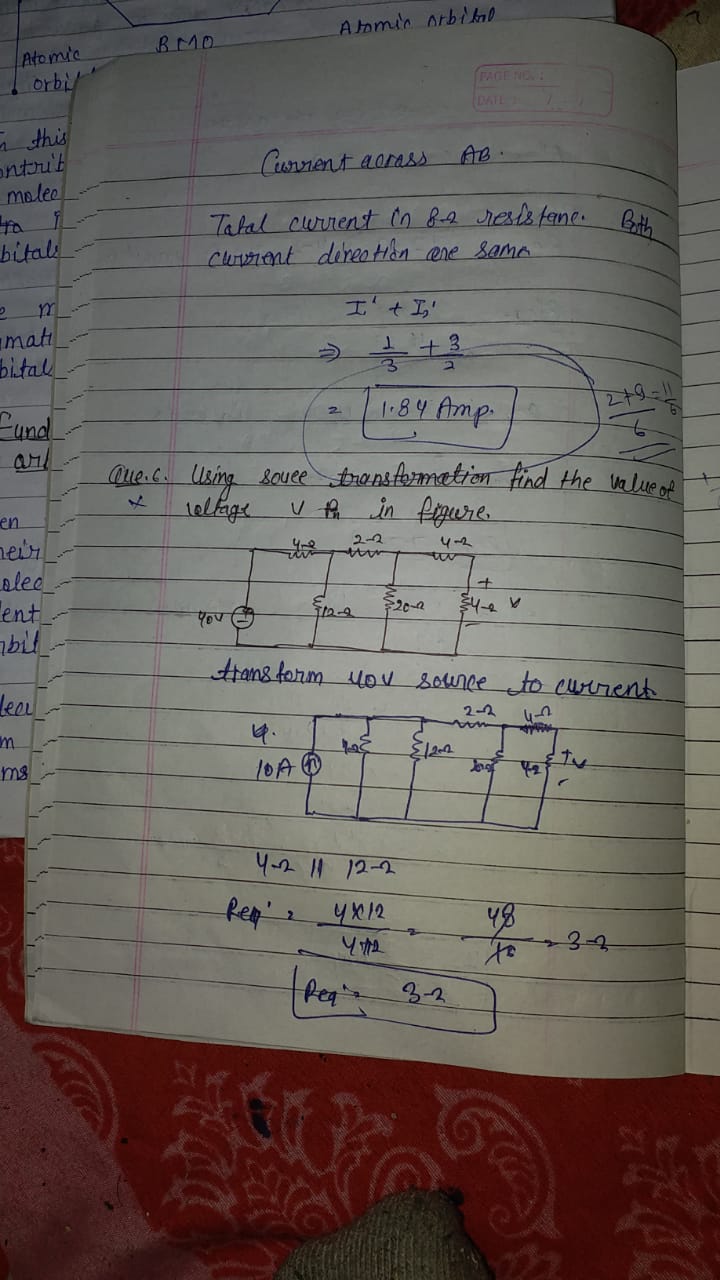 Atomic
orbi
BMO
Atomic orbital
this
ontrib
molec
bitals
mati
bital
Fund
en
heir
olec
lent
m
ms
PAGE NO. :
DATE : / /
Current across AB.
Total current in 8-Ω resistane. Both
current direction are same
I' + I₁'
⇒ 1/3 + 3/2
= 1.84 Amp.
2+9/6 = 11/6
Que.6. Using souce transformation find the value of
x voltage V in figure.
4-Ω 2-Ω 4-Ω
40V 12-Ω 20-Ω 4-Ω + V -
transform 40V source to current
2-Ω 4-Ω
10A 12-Ω 4Ω + V -
4-Ω || 12-Ω
Req' = 4X12/4+12 = 48/16 = 3-Ω
Req' = 3-Ω